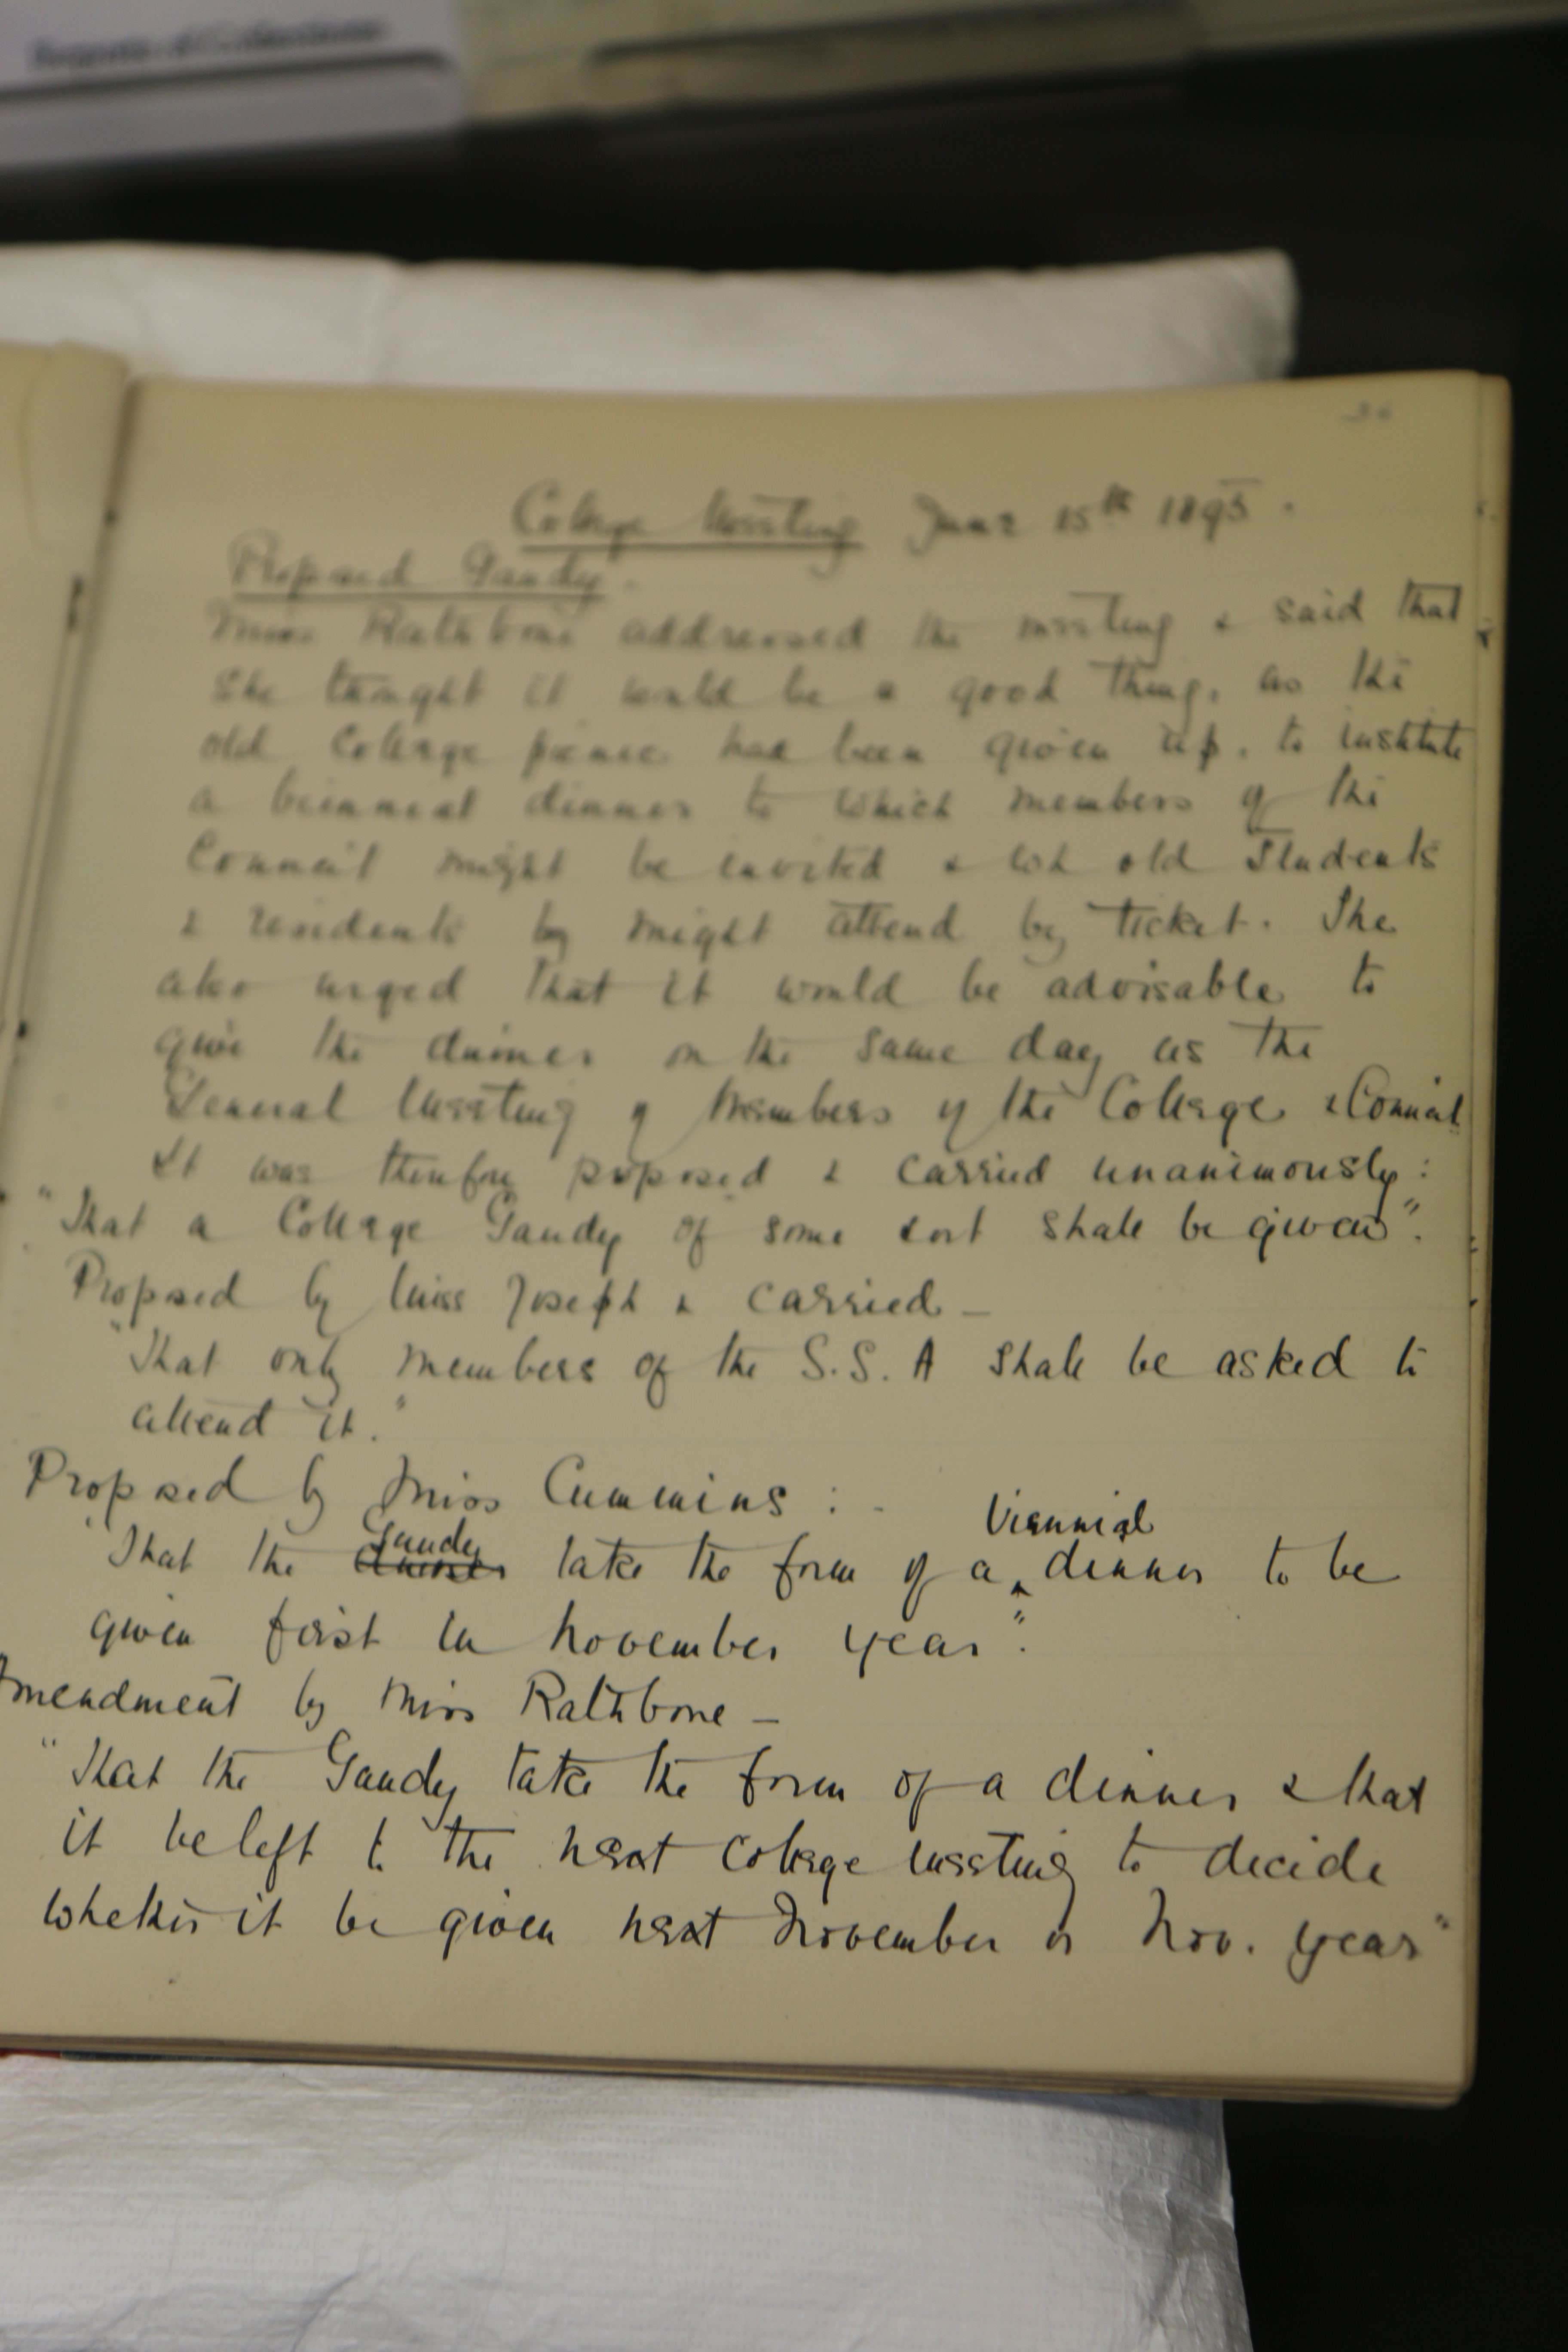 Reports of Collections
36
College Meeting June 15th 1895.
Proposed Gaudy.
Miss Rathbone addressed the meeting & said that
she thought it would be a good thing, as the
old College picnic had been given up, to institute
a biennial dinner to which members of the
Council might be invited & wh old Students
& residents by might attend by ticket. She
also urged that it would be advisable to
give the dinner on the same day as the
General Meeting of Members of the College & Council
It was therefore proposed & carried unanimously:
"That a College Gaudy of some sort shall be given".
Proposed by Miss Joseph & carried –
"That only members of the S.S.A shall be asked to
attend it."
Proposed by Miss Cummins : -
Gaudy Viennial
"That the dinner take the form of a ‸ dinner to be
given first in November year".
Amendment by Miss Rathbone –
"That the Gaudy take the form of a dinner & that
it be left to the next College meeting to decide
whether it be given next November or Nov. year"